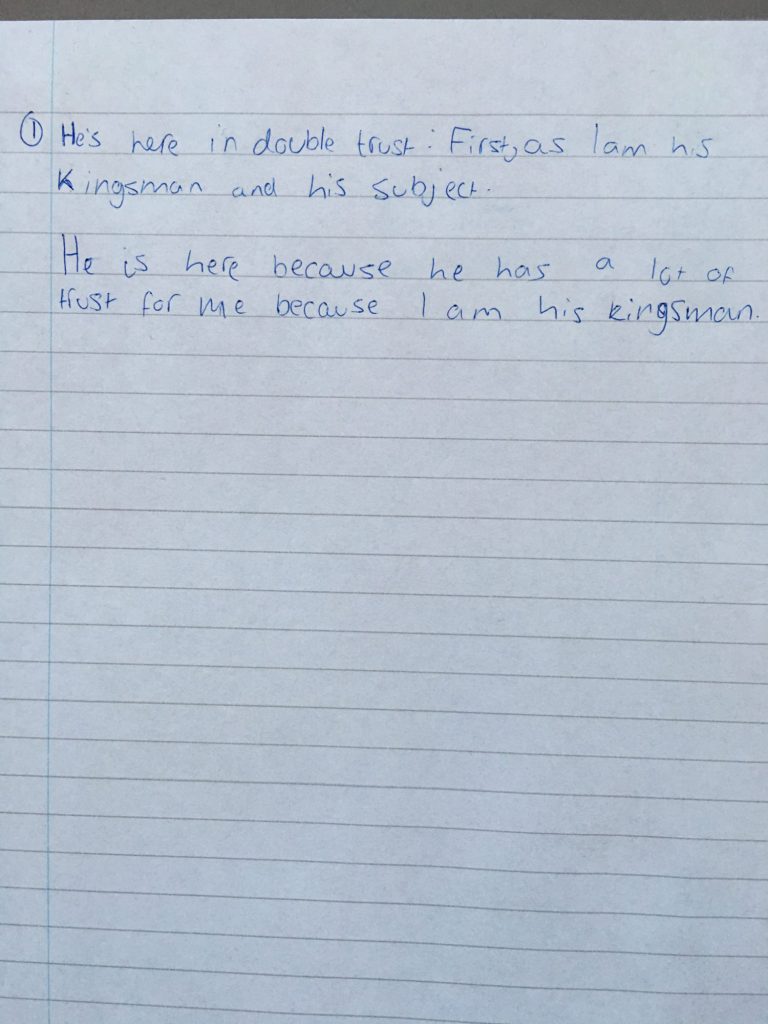 ① He's here in double trust: First, as I am his
Kingsman and his subject.
He is here because he has a lot of
trust for me because I am his kingsman.